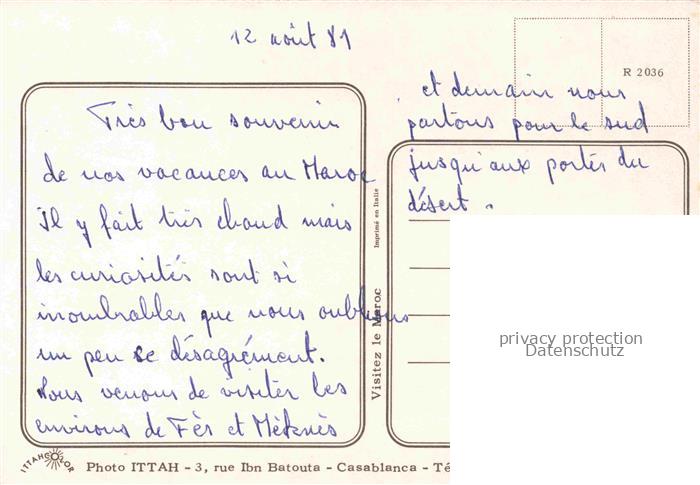 12 août 81
R 2036
Très bon souvenir
de nos vacances au Maroc
Il y fait très chaud mais
les curiosités sont si
inombrables que nous oublions
un peu ce désagrément.
Nous venons de visiter les
environs de Fès et Méknès
et demain nous
partons pour le sud
jusqu'aux portes du
désert.
Imprimé en Italie
Visitez le Maroc
privacy protection
Datenschutz
ITTAHCOLOR
Photo ITTAH - 3, rue Ibn Batouta - Casablanca - Té